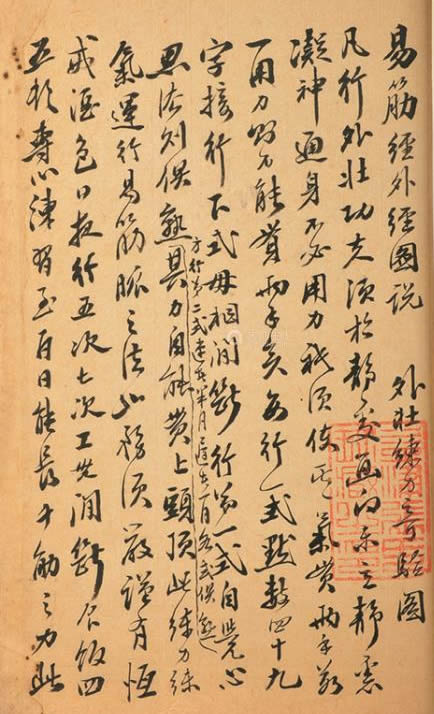 易筋經外經圖說 外壯練力奇驗圖
凡行外壯功夫須於靜處面向東立靜意
凝神通身不必用力只須使其氣貫兩手若
一用力則力難貫兩手矣每行一式默數四十九
字接行下式毋相間斷行第一式自覺心
方行第二三式速者半月遲者一月各式俱熟
思法則俱熟其力自能貫上頭頂此練力練
氣運行易筋脈之法也務須嚴謹有恆
戒酒色日夜行五次七次工無間斷食飯四
五頓專心練習至百日能長十觔之力此